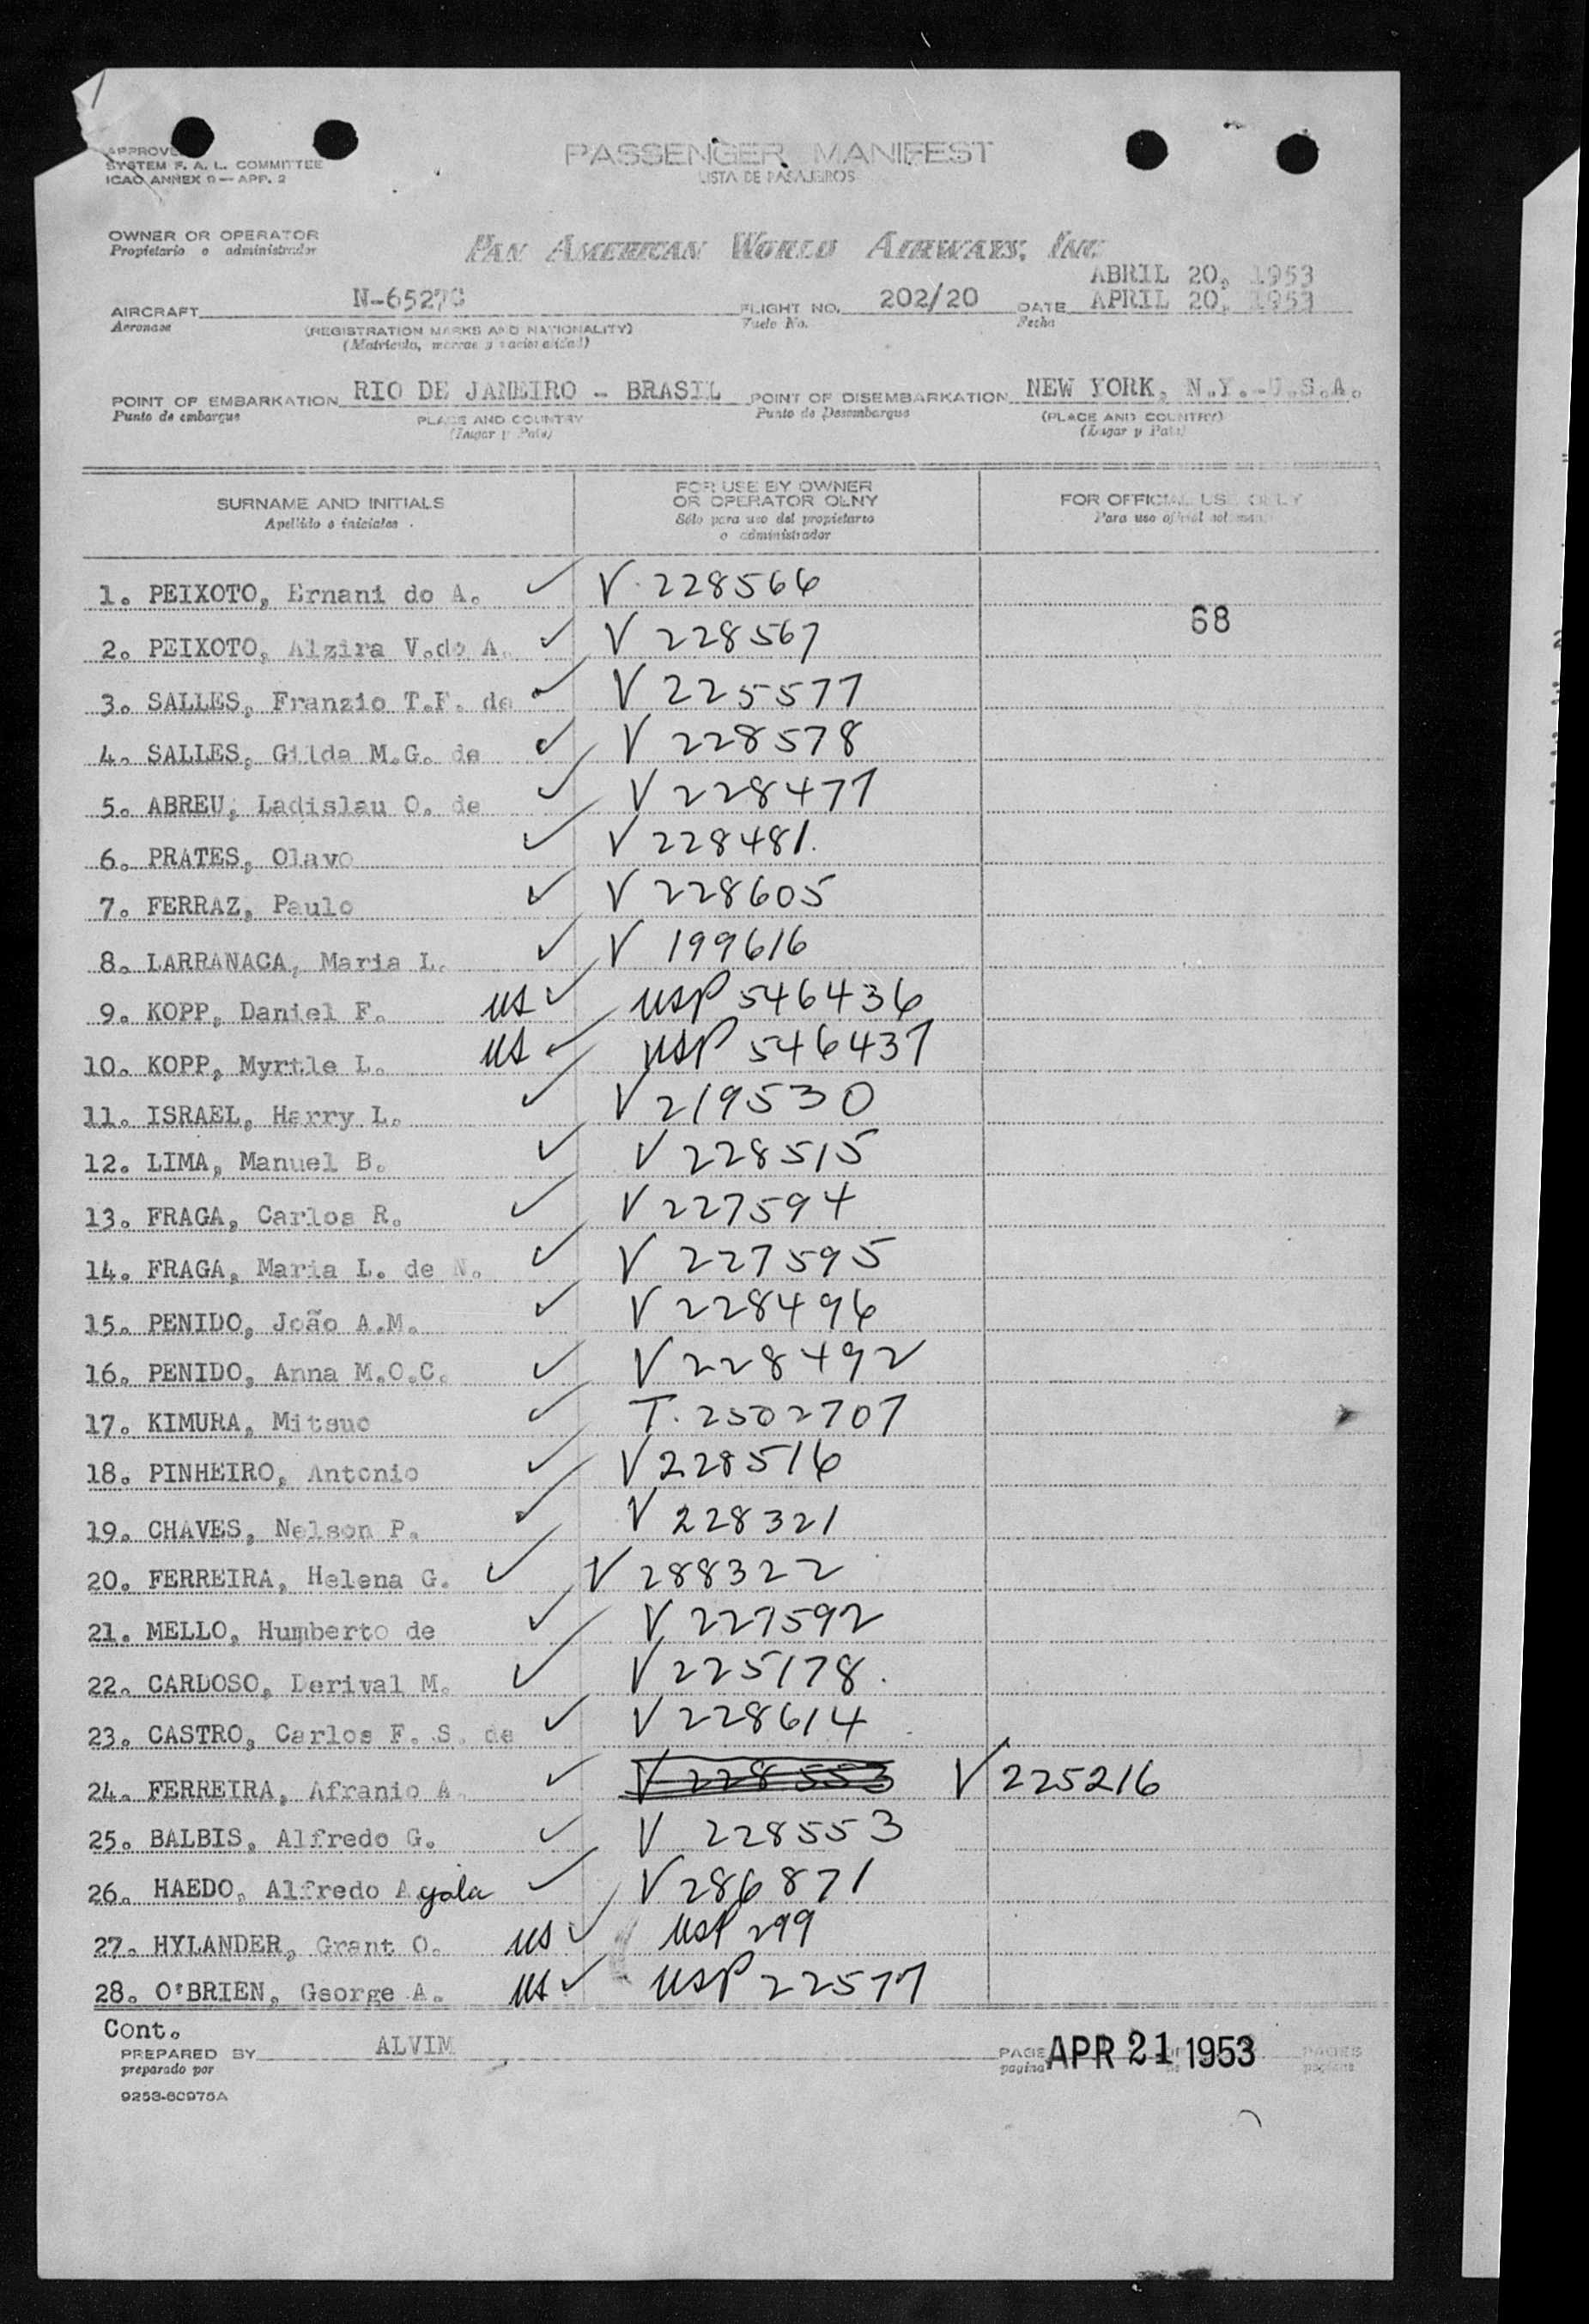 APPROVED
SYSTEM F. A. L. COMMITTEE
ICAO ANNEX 9 — APP. 2
PASSENGER MANIFEST
LISTA DE PASAJEROS
OWNER OR OPERATOR
Propietario o administrador
PAN AMERICAN WORLD AIRWAYS, INC
ABRIL 20, 1953
AIRCRAFT N-6527C FLIGHT NO. 202/20 DATE APRIL 20, 1953
Aeronave Vuelo No. Fecha
(REGISTRATION MARKS AND NATIONALITY)
(Matricula, marcas y nacionalidad)
POINT OF EMBARKATION RIO DE JANEIRO - BRASIL POINT OF DISEMBARKATION NEW YORK, N.Y.-U.S.A.
Punto de embarque PLACE AND COUNTRY Punto de Desembarque (PLACE AND COUNTRY)
(Lugar y Pais) (Lugar y Pais)
SURNAME AND INITIALS FOR USE BY OWNER OR OPERATOR OLNY FOR OFFICIAL USE ONLY
Apellido e iniciales Sólo para uso del propietario o administrador Para uso oficial solamente
1. PEIXOTO, Ernani do A. ✓ V 228566
68
2. PEIXOTO, Alzira V.do A. ✓ V 228567
3. SALLES, Franzio T.F. de ✓ V 225577
4. SALLES, Gilda M.G. de ✓ V 228578
5. ABREU, Ladislau O. de ✓ V 228477
6. PRATES, Olavo ✓ V 228481.
7. FERRAZ, Paulo ✓ V 228605
8. LARRANACA, Maria L. ✓ V 199616
9. KOPP, Daniel F. US ✓ USP 546436
10. KOPP, Myrtle L. US ✓ USP 546437
11. ISRAEL, Harry L. ✓ V 219530
12. LIMA, Manuel B. ✓ V 228515
13. FRAGA, Carlos R. ✓ V 227594
14. FRAGA, Maria L. de N. ✓ V 227595
15. PENIDO, João A.M. ✓ V 228496
16. PENIDO, Anna M.O.C. ✓ V 228492
17. KIMURA, Mitsuo ✓ T. 2502707
18. PINHEIRO, Antonio ✓ V 228516
19. CHAVES, Nelson P. ✓ V 228321
20. FERREIRA, Helena G. ✓ V 288322
21. MELLO, Humberto de ✓ V 227592
22. CARDOSO, Derival M. ✓ V 225178.
23. CASTRO, Carlos F. S. de ✓ V 228614
24. FERREIRA, Afranio A. ✓ V 228553 V 225216
25. BALBIS, Alfredo G. ✓ V 228553
26. HAEDO, Alfredo Ayala ✓ V 286871
27. HYLANDER, Grant O. US ✓ USP 299
28. O'BRIEN, George A. US ✓ USP 22577
Cont.
PREPARED BY ALVIM PAGE APR 21 1953 PAGES
preparado por pagina de paginas
9253-60975A